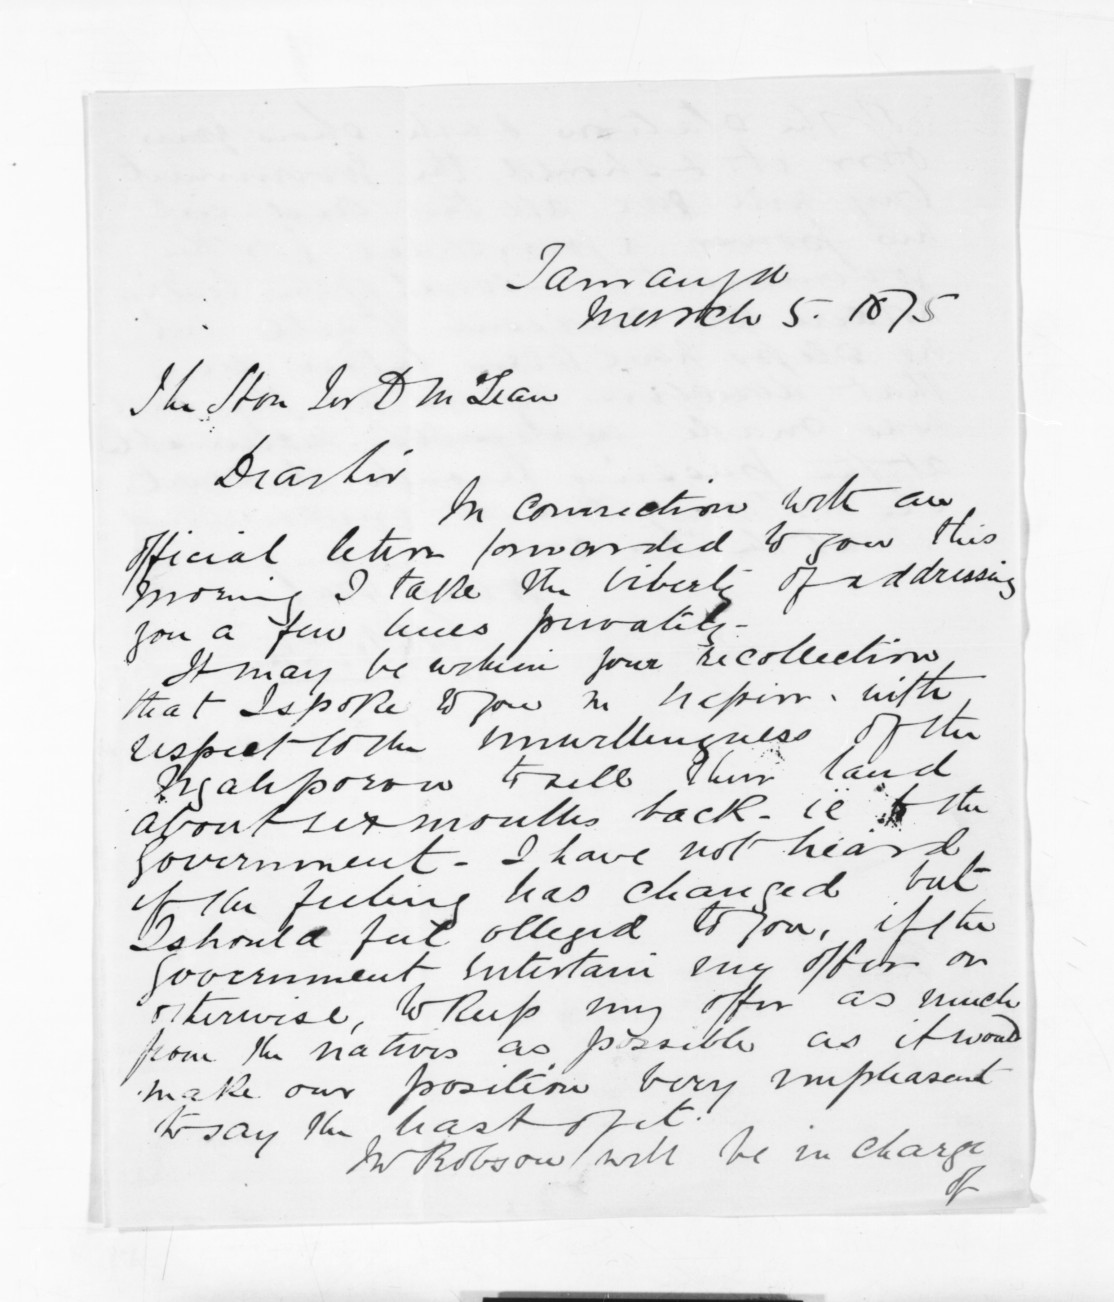 Tauranga
March 5. 1875
The Hon Sir D McLean
Dear Sir
In connection with an
official letter forwarded to you this
morning I take the liberty of addressing
you a few lines privately.
It may be within your recollection
that I spoke to you in Napier. with
respect to the unwillingness of the
Ngatiporou to sell their land
about six months back. ie to the
Government. I have not heard
if the feeling has changed but
I should feel obliged to you, if the
Government entertain my offer or
otherwise, to keep my offer as much
from the natives as possible as it would
make our position very unpleasant
to say the least of it.
Mr Robson will be in charge
of